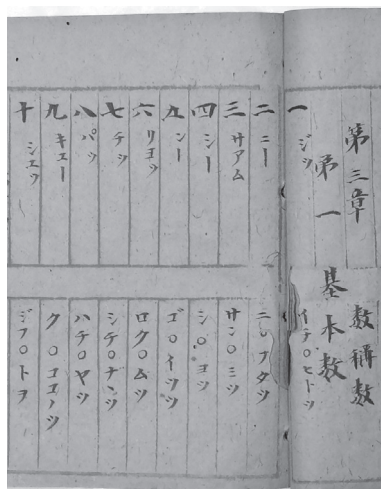 第三章 數稱數
第一 基本數
一 ジツ イチ〇ヒトツ
二 ニー ニ〇フタツ
三 サアム サン〇ミツ
四 シー シ〇ヨツ
五 ンー ゴ〇イツツ
六 リヨツ ロク〇ムツ
七 チツ シチ〇ナヽツ
八 パツ ハチ〇ヤツ
九 キエー ク〇ココノツ
十 シエツ ジフ〇トヲ